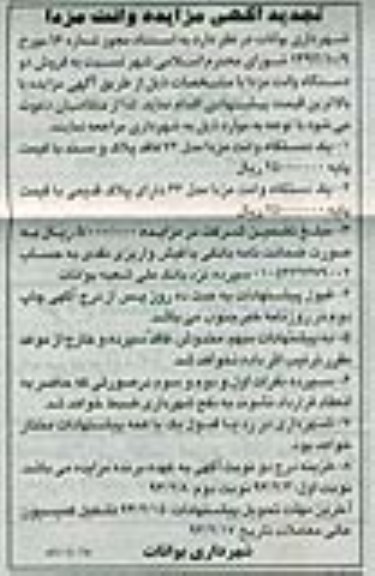 تجدید آگهی مزایده وانت مزدا
شهرداری بوانات در نظر دارد به استناد مجوز شماره مورخ
شورای محترم اسلامی شهر نسبت به فروش دو
دستگاه وانت مزدا با مشخصات ذیل از طریق آگهی مزایده با
بالاترین قیمت پیشنهادی اقدام نماید. لذا از متقاضیان دعوت
می شود با توجه به موارد ذیل به شهرداری مراجعه نمایند.
۱- یک دستگاه وانت مزدا مدل فاقد پلاک و سند با قیمت
پایه ریال
۲- یک دستگاه وانت مزدا مدل دارای پلاک قدیمی با قیمت
پایه ریال
۳- مبلغ تضمین شرکت در مزایده ریال به
صورت ضمانت نامه بانکی یا فیش واریزی نقدی به حساب
سپرده نزد بانک ملی شعبه بوانات
۴- قبول پیشنهادات به مدت ده روز پس از درج آگهی چاپ
دوم در روزنامه خبر جنوب می باشد.
۵- به پیشنهادات مبهم مخدوش، فاقد سپرده و خارج از موعد
مقرر ترتیب اثر داده نخواهد شد.
۶- سپرده نفرات اول و دوم و سوم درصورتی که حاضر به
انعقاد قرارداد نشوند، به نفع شهرداری ضبط خواهد شد.
۷- شهرداری در رد یا قبول یک یا همه پیشنهادات مختار
خواهد بود.
۸- هزینه درج دو نوبت آگهی به عهده برنده مزایده می باشد.
نوبت اول: ۹۳/۹/۳ نوبت دوم: ۹۳/۹/۸
آخرین مهلت تحویل پیشنهادات: تشکیل کمیسیون
عالی معاملات تاریخ ۹۳/۹/۱۷
شهرداری بوانات